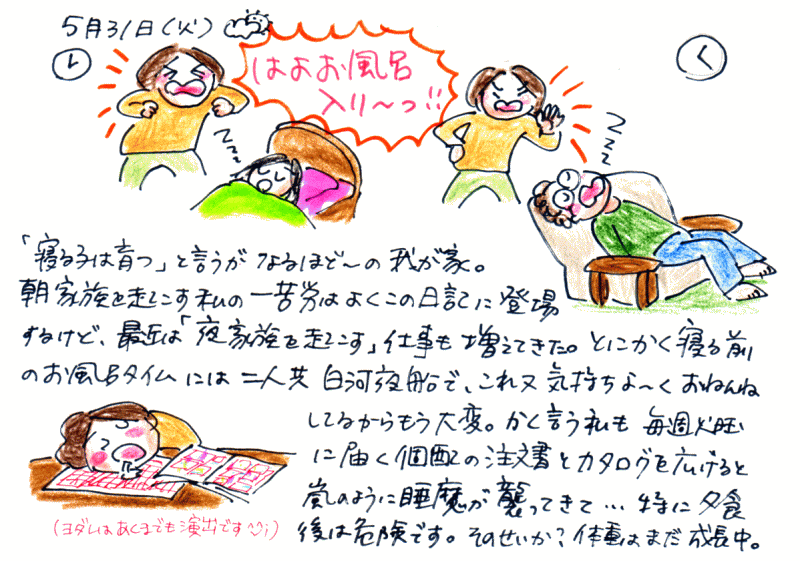 5月31日(火)
はよお風呂
入り〜っ!!
zzz
zzz
「寝る子は育つ」と言うが なるほど〜の 我が家。
朝家族を起こす私の一苦労はよくこの日記に登場
するけど、最近は「夜家族を起こす」仕事も増えてきた。とにかく寝る前
のお風呂タイムには二人共 白河夜船で、これ又気持ちよ〜くおねんね
してるからもう大変。かく言う私も 毎週火旺
に届く個配の注文書とカタログを広げると
嵐のように睡魔が襲ってきて…特に夕食
後は危険です。そのせいか?体重はまだ成長中。
(ヨダレはあくまでも演出です^^;)